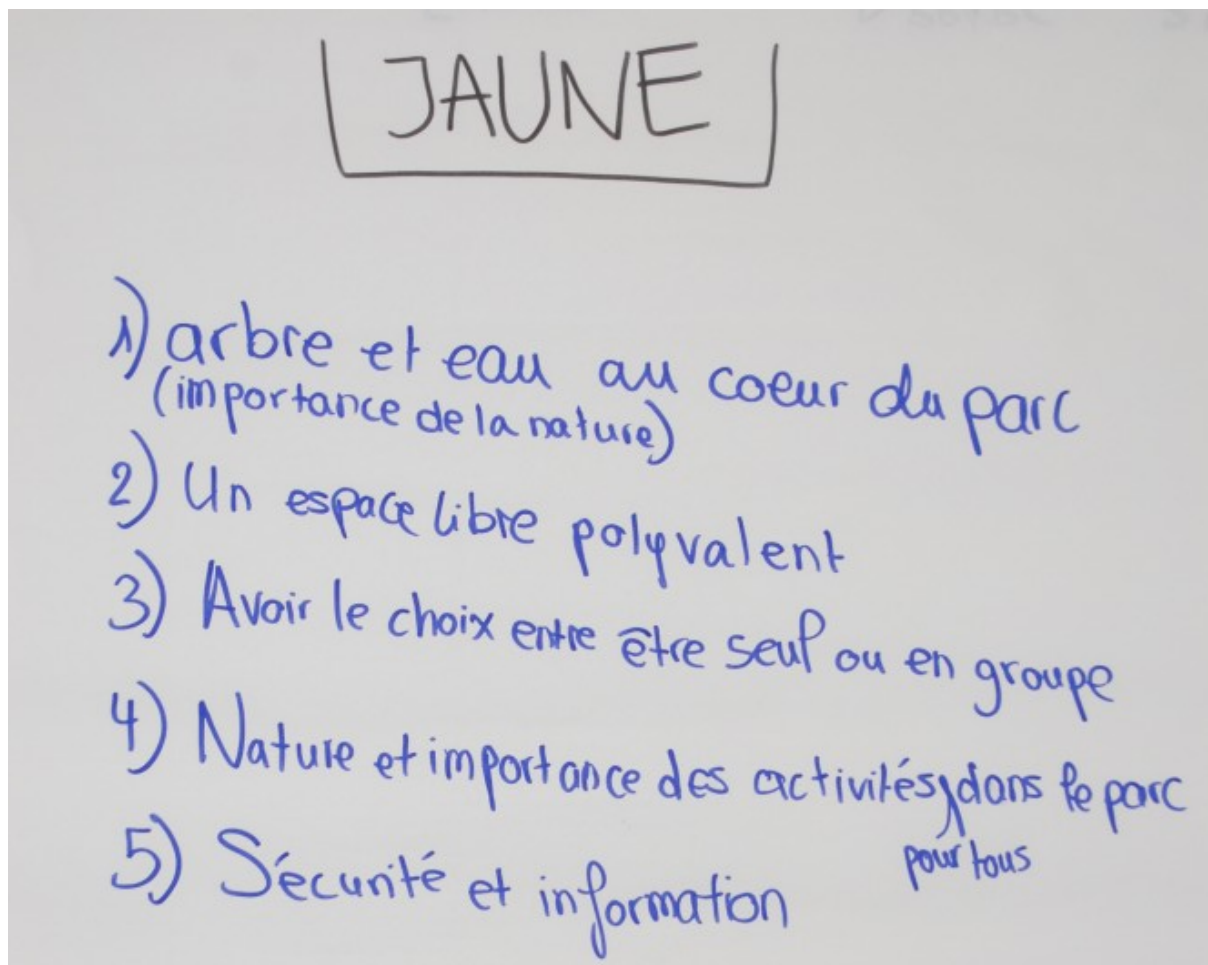 JAUNE
1) arbre et eau au coeur du parc
(importance de la nature)
2) Un espace libre polyvalent
3) Avoir le choix entre être seul ou en groupe
4) Nature et importance des activités dans le parc
pour tous
5) Sécurité et information